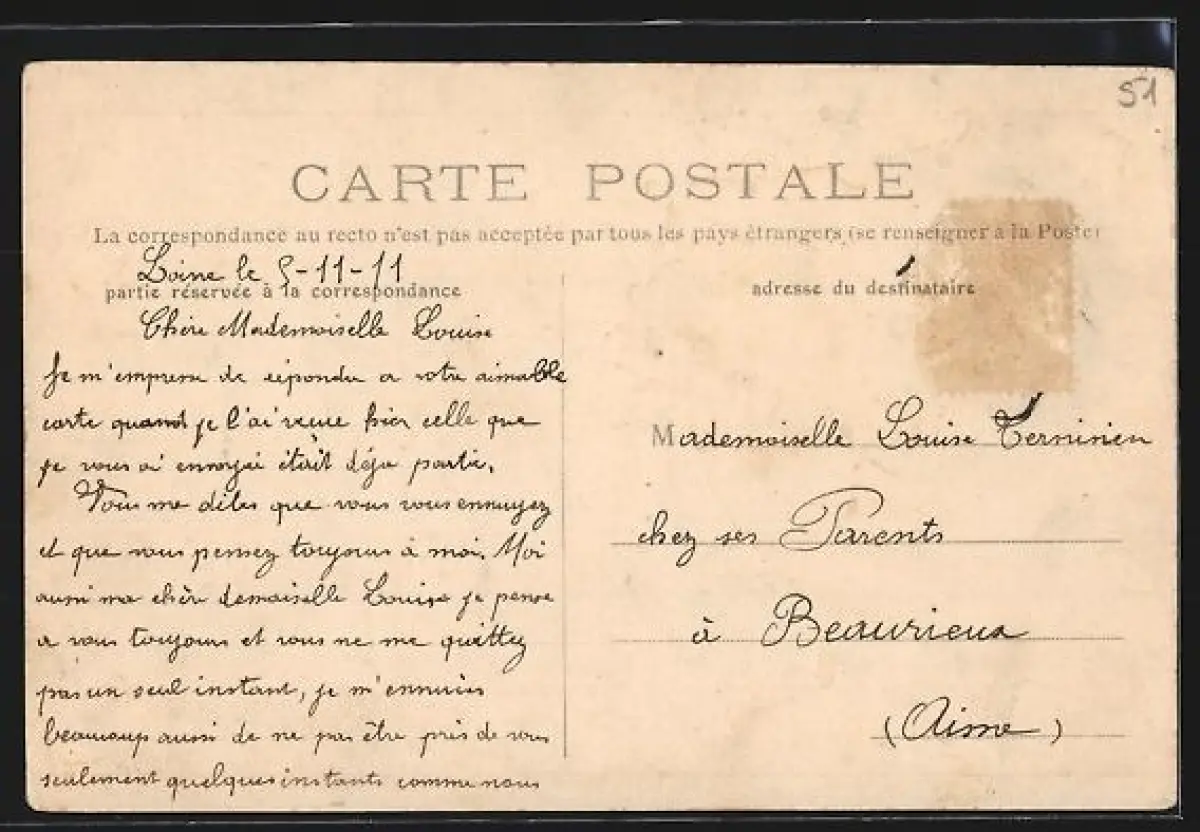 51
CARTE POSTALE
La correspondance au recto n'est pas acceptée par tous les pays étrangers (se renseigner à la Poste)
le 5-11-11
partie réservée à la correspondance
adresse du destinataire
Chère Mademoiselle Louise
Je m'empresse de répondre a votre aimable
carte quand je l'ai reçue hier celle que
je vous ai envoyée était déja partie.
Vous me dites que vous vous ennuyez
et que vous pensez toujours à moi. Moi
aussi ma chère demoiselle Louise je pense
a vous toujours et vous ne me quittez
pas un seul instant, je m'ennuies
beaucoup aussi de ne pas être près de vous
seulement quelques instants comme nous
Mademoiselle Louise
chez ses Parents
à Beaurieux
(Aisne)